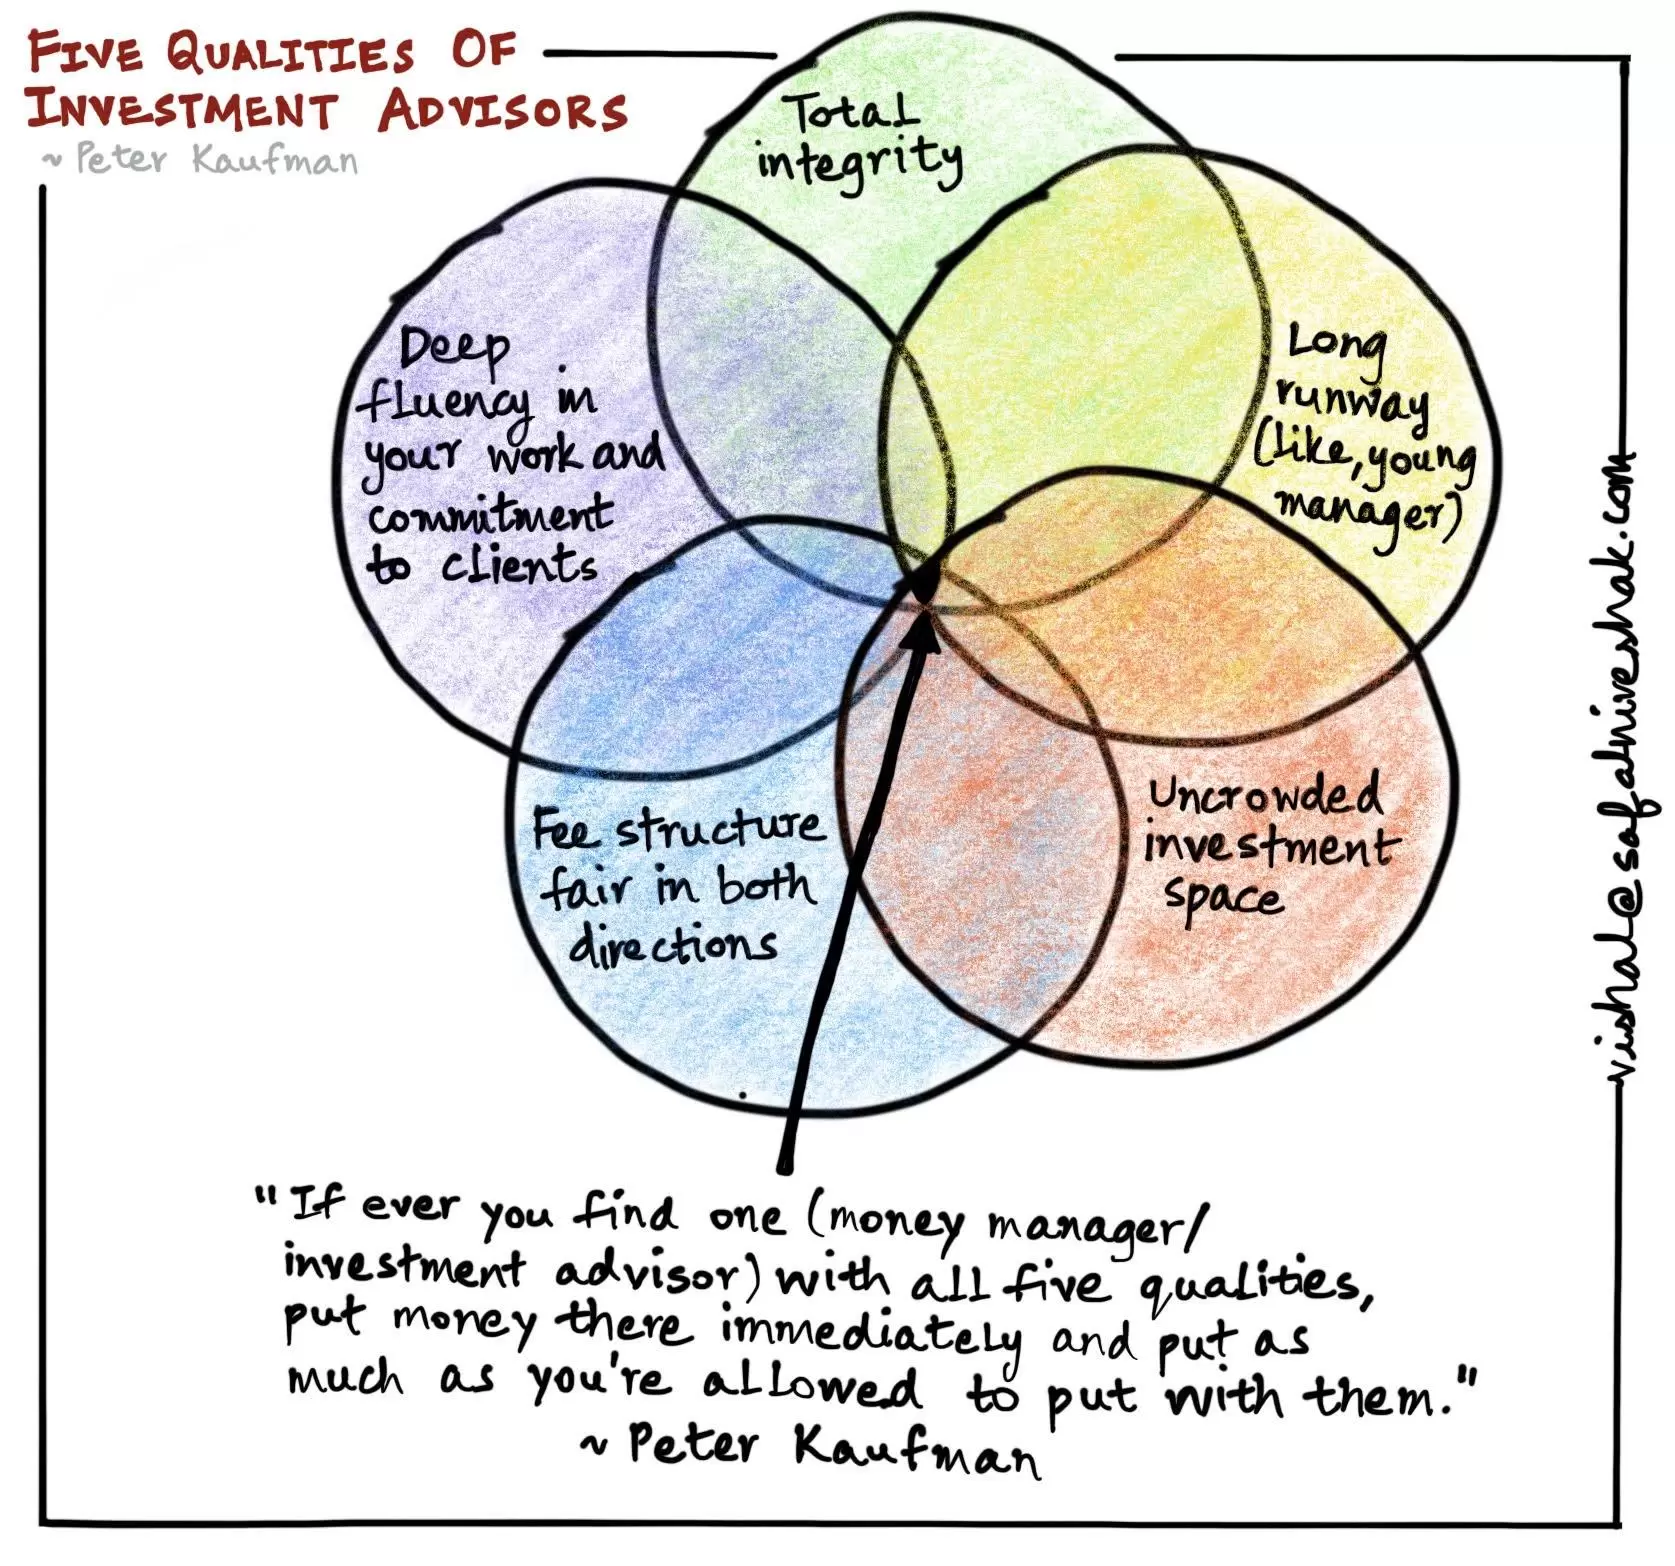 FIVE QUALITIES OF
INVESTMENT ADVISORS
~ Peter Kaufman
Total
integrity
Deep
fluency in
your work and
commitment
to clients
Long
runway
(like, young
manager)
Fee structure
fair in both
directions
Uncrowded
investment
space
vishal@safalniveshak.com
"If ever you find one (money manager/
investment advisor) with all five qualities,
put money there immediately and put as
much as you're allowed to put with them."
~ Peter Kaufman